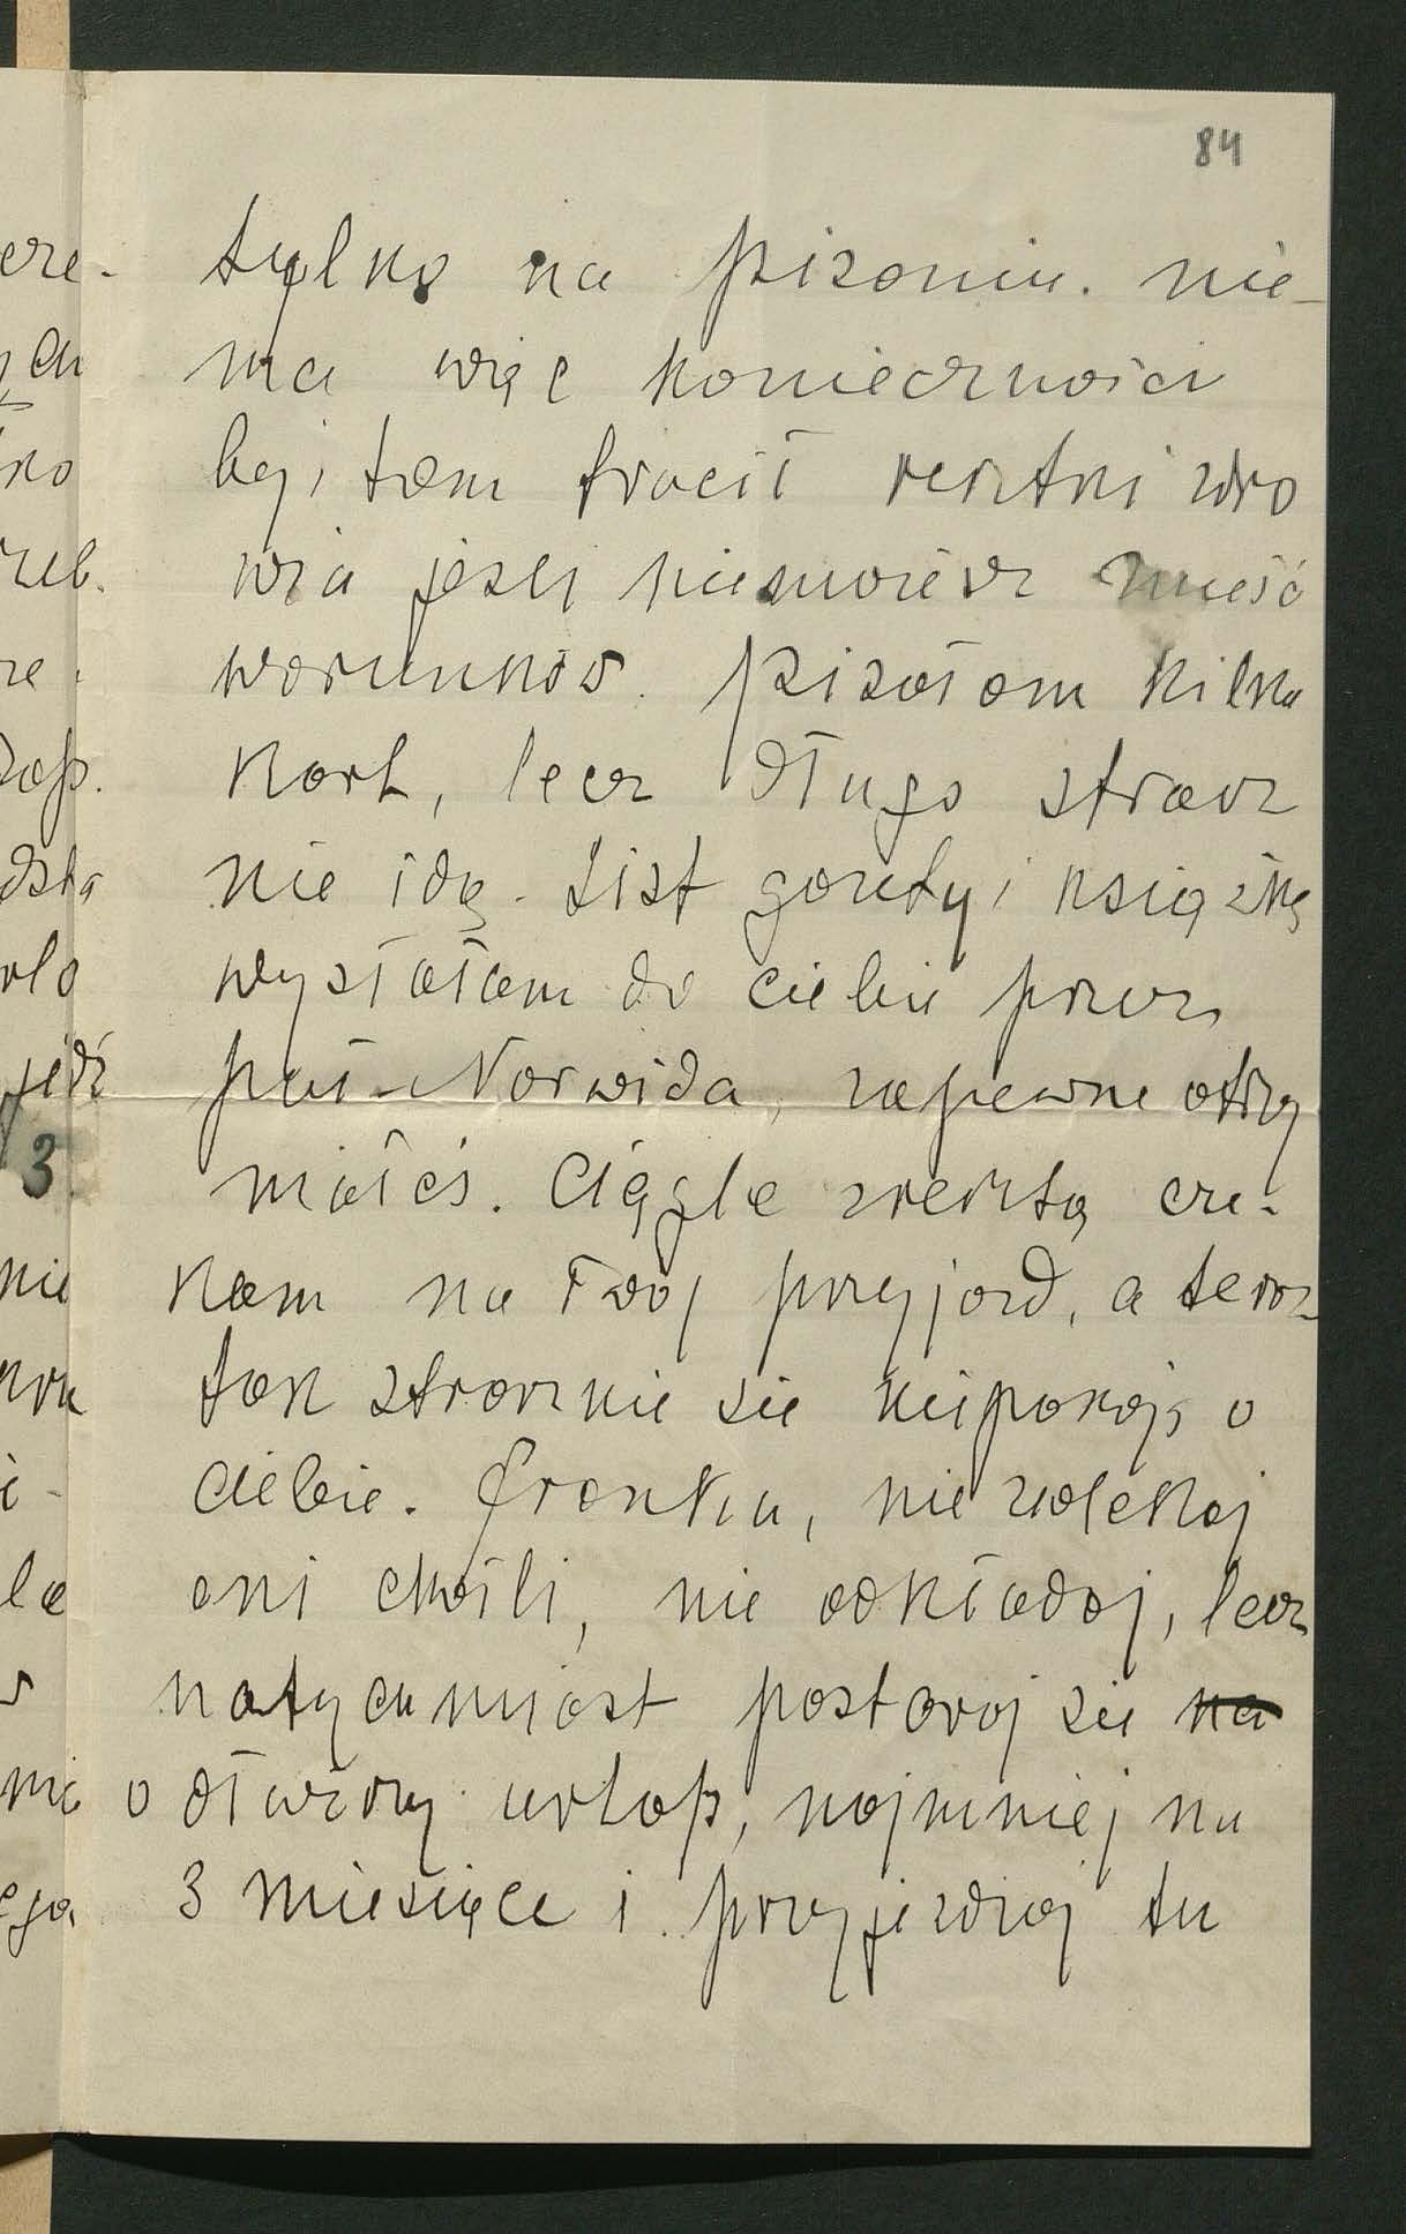 84
tylko na pisaniu. nie-
ma więc konieczności
byś tam tracił resztki zdro
wia jeśli niemożesz znieść
warunków. Pisałam kilka
kart, lecz długo strasz
nie idą. List gruby i książkę
wysłałam do ciebie przez
puł-Norwida, zapewne otrzy
małeś. Ciągle zresztą cze-
kam na Twój przyjazd, a teraz
tak strasznie sie niepokoję o
ciebie. Franku, nie zwlekaj
ani chwili, nie odkładaj, lecz
natychmiast postaraj sie na
o dłuższy urlop, najmniej na
3 miesiące i przyjeżdżaj tu